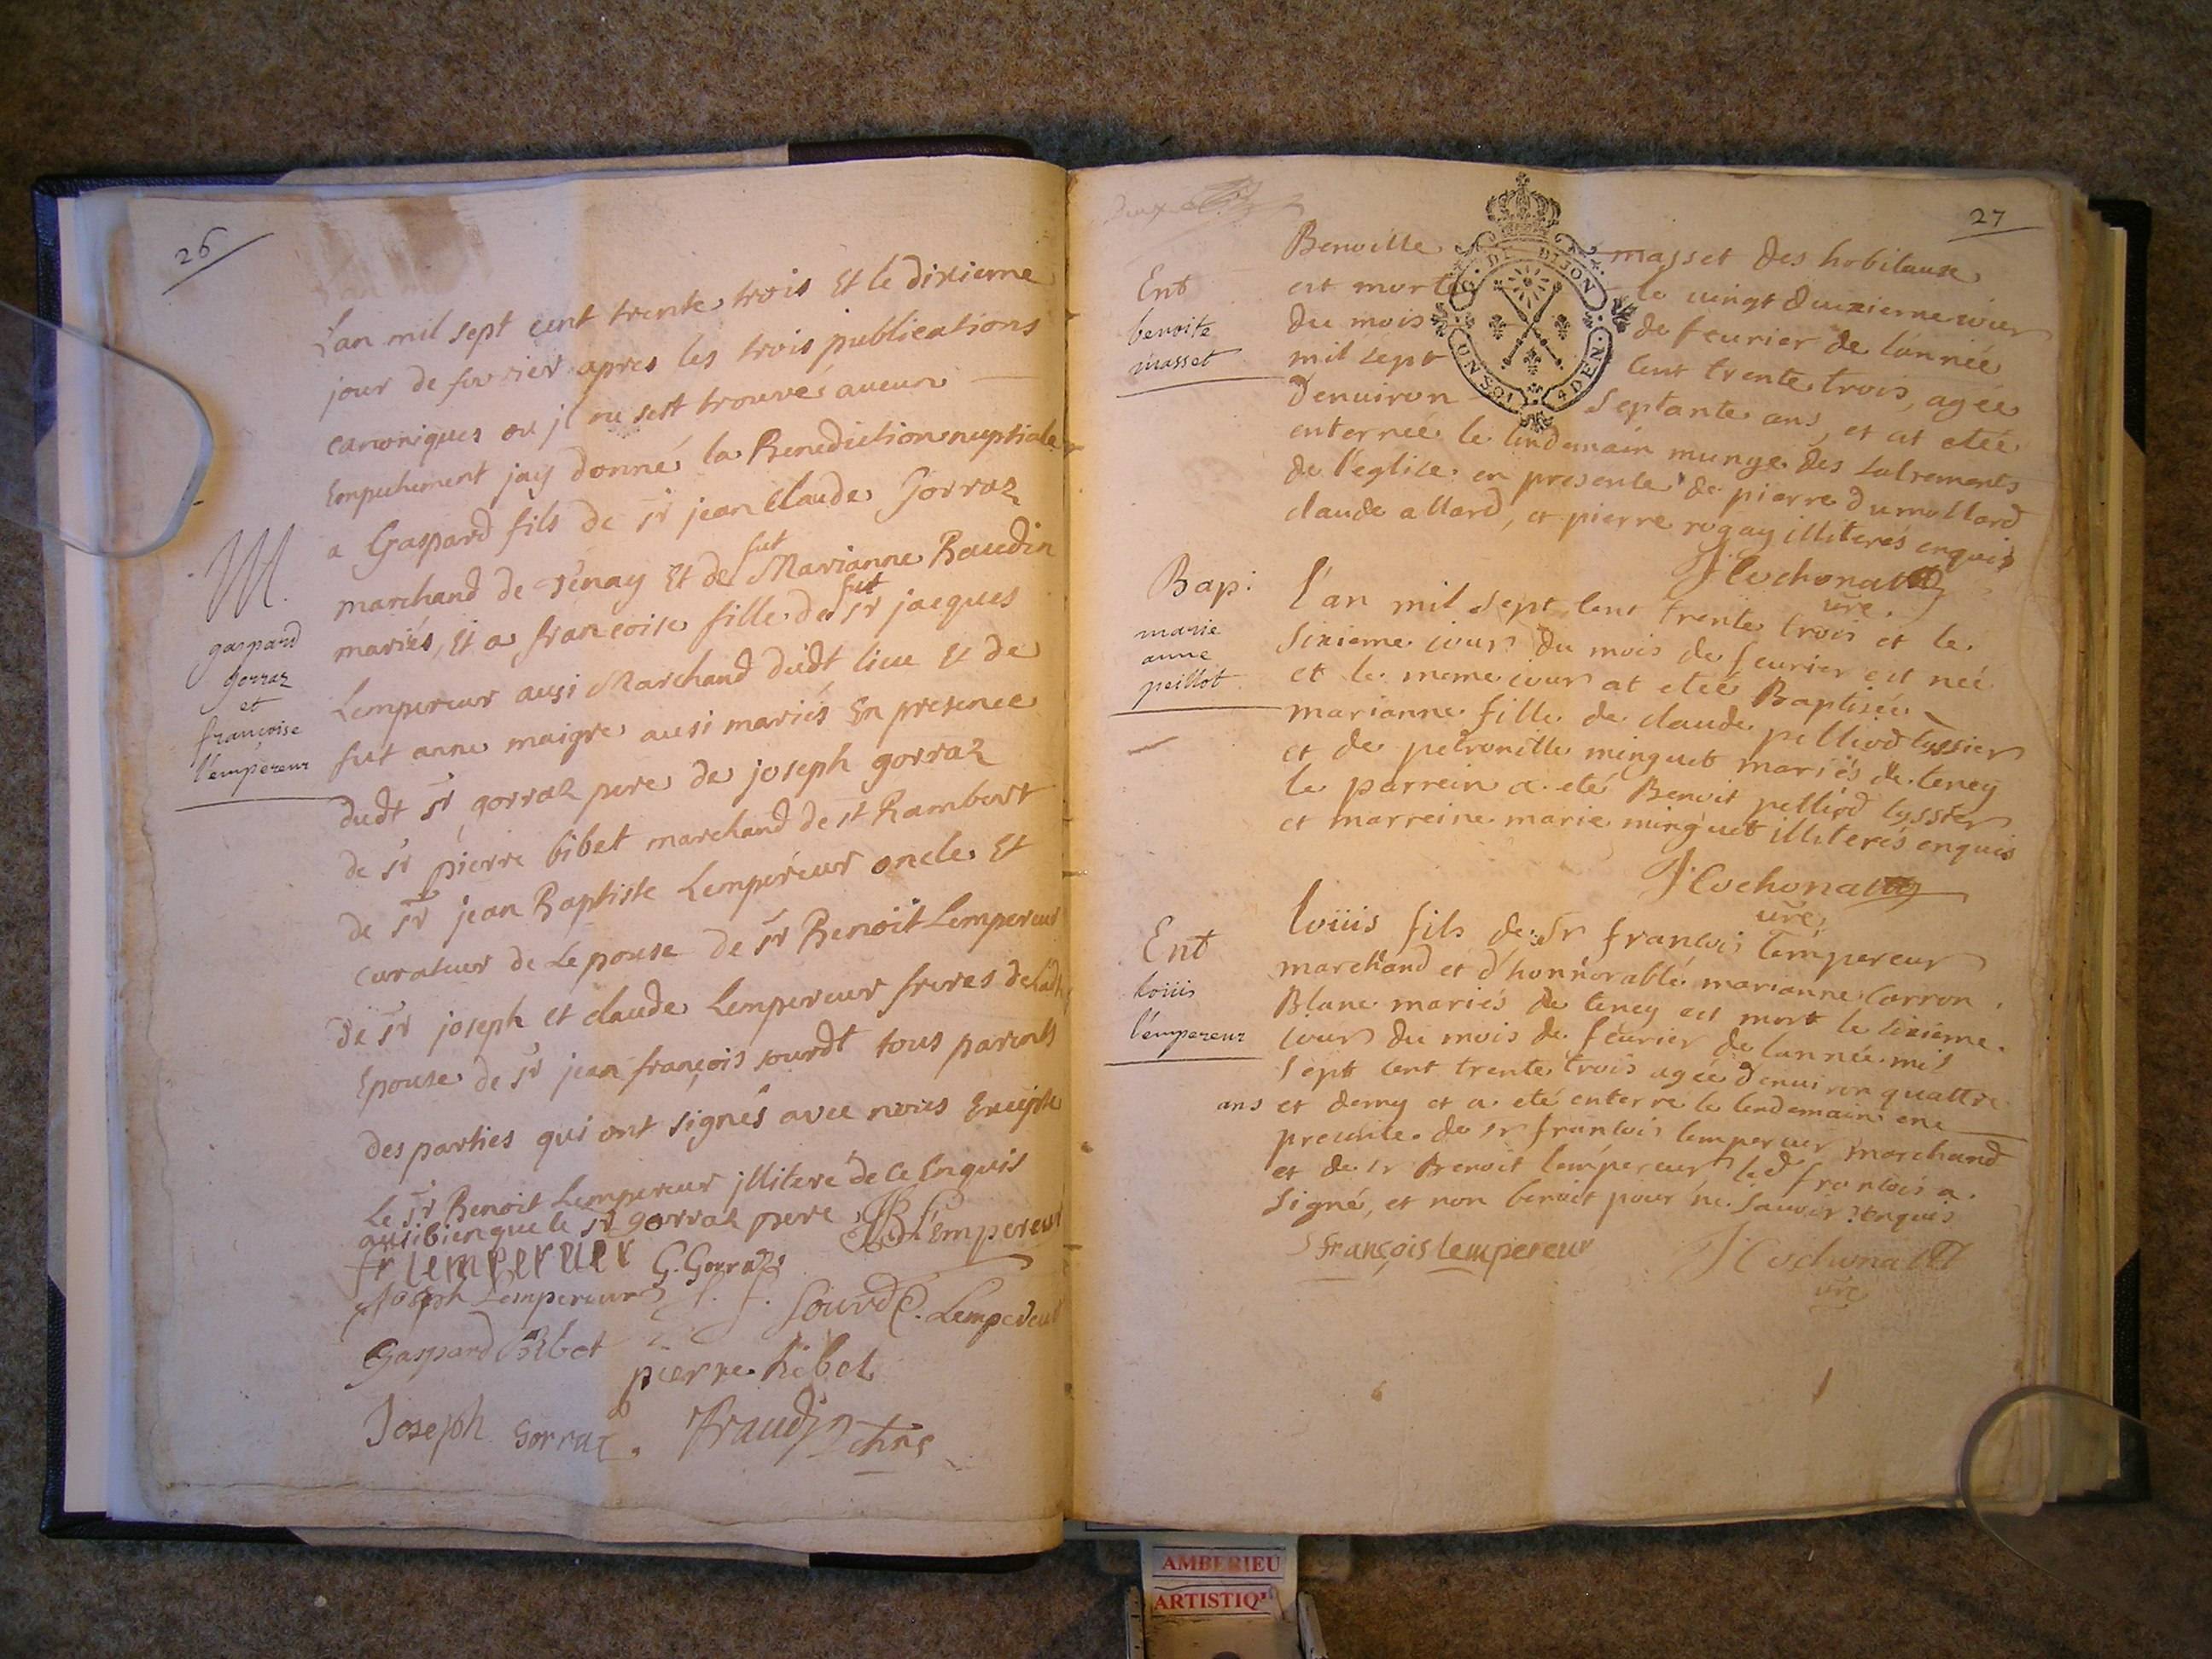 26
L'an mil sept cent trente trois Et le dixieme
jour de fuvrier apres les trois publications
canoniques ou jl ne sest trouvé aucun
Empechement jay donné la Benediction nuptiale
a Gaspard fils de sr jean claude Gorraz
marchand de tenay Et de fut Marianne Baudin
mariés, Et a francoise fille de fut sr jacques
Lempereur ausi Marchand dudt lieu Et de
fut anne maigre ausi mariés En presence
dudt sr gorraz pere de joseph gorraz
de sr pierre bibet marchand de st Rambert
de sr jean Baptiste Lempereur oncle Et
curateur de Lepouse de sr Benoit Lempereur
de sr joseph et claude Lempereur freres de
Epouse de sr jean françois sourdt tous parents
des parties qui ont signés avec nous Excepte
Le sr Benoit Lempereur jlliteré de ce Enquis
ausi bien que le sr gorraz pere JB L'empereur
fr lemperuer G. Gorraz
Joseph Lempereur J. f. Sourd C. Lempereur
Gaspard Bibet
pierre bibet
Joseph Gorraz.
M.
gaspard
gorraz
et
françoise
l'empereur
27
Benoitte masset des hobitaux
est morte le vingt deuxieme iour
du mois de feurier de lannée
mil sept cent trente trois, agée
denuiron septante ans, et at etée
enterrée le lendemain munye des sacrements
de l'eglise en presence de pierre dumollard
claude allard, et pierre rogay illiterés enquis
J Cochonat
vre.
Ent
benoite
masset
L'an mil sept cent trente trois et le
sixieme iour du mois de feurier est née
et le meme iour at etée Baptisée
marianne fille de claude pelliod tyssier
et de petronille minguet mariés de teney
le parrein a eté Benoit pelliod tysster
et marreine marie minguet illiterés enquis
J Cochonat
vre
Bap:
marie
anne
peillot
Loüis fils de sr francois lempereur
marchand et d'honnorable marianne Carron
Blanc mariés de teney est mort le sixieme
iour du mois de feurier de lannée mil
sept cent trente trois agée denuiron quattre
ans et demy et a eté enterré le lendemain en
presence de sr francois lempereur marchand
et de sr Benoit lempereur led francois a
signé, et non benoit pour ne sauoir enquis
françois lempereur J Cochonat
vre
Ent
Loüis
l'empereur
G. DE DIJON
UN SOL 4 DEN.
AMBERIEU
ARTISTIQ